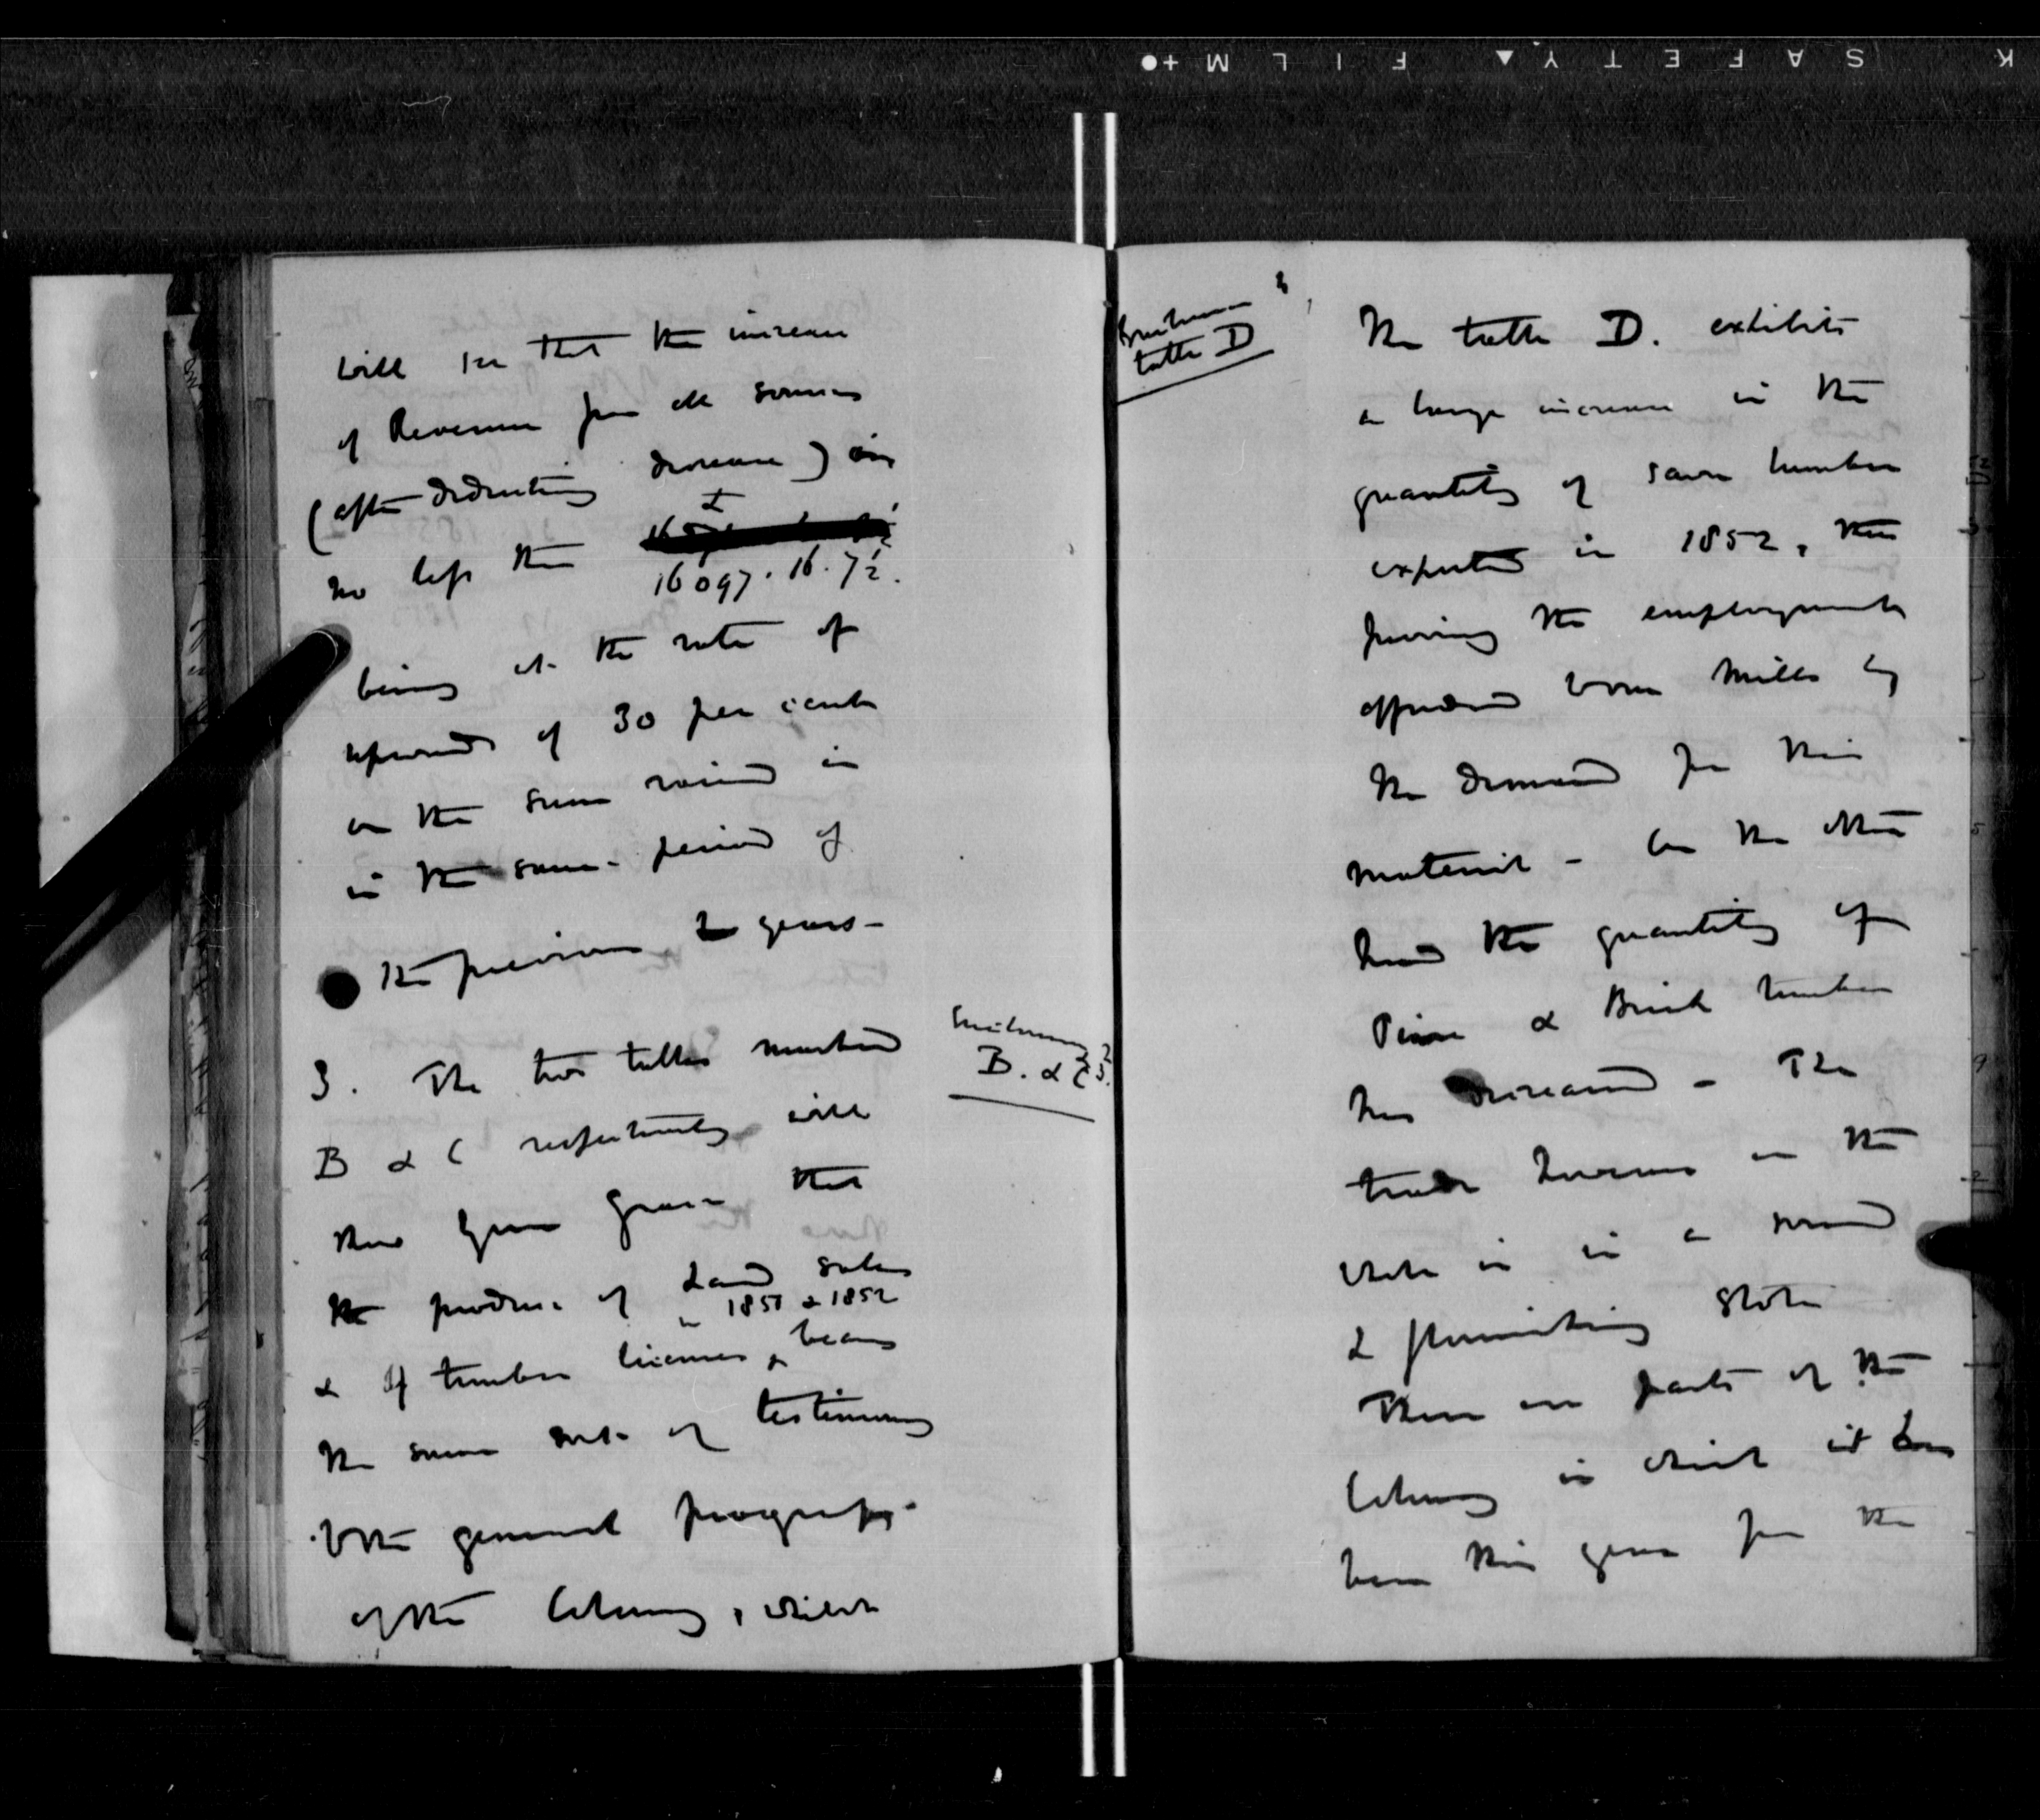 K SAFETY FILM
will see that the increase
of Revenue from all sources
(after deducting decrease) is
£
no less than
16097. 16. 7½.
being at the rate of
upwards of 30 per cent
on the sum raised in
in the same period of
the previous 2 years -
3. The two tables marked
B & C respectively will
shew Your Grace that
the produce of Land sales
in 1851 & 1852
& of timber licenses, bears
the same sort of testimony
to the general progress
of the Colony, which
Enclosures
B. & C
Enclosure
table D
The table D. exhibits
a large increase in the
quantity of sawn lumber
exported in 1852, thus
proving the employment
afforded to our Mills by
the demand for this
material - On the other
hand the quantity of
Pine & Birch timber
has decreased - The
trade however on the
whole is in a sound
& flourishing state
There are parts of the
Colony in which it has
been this year for the